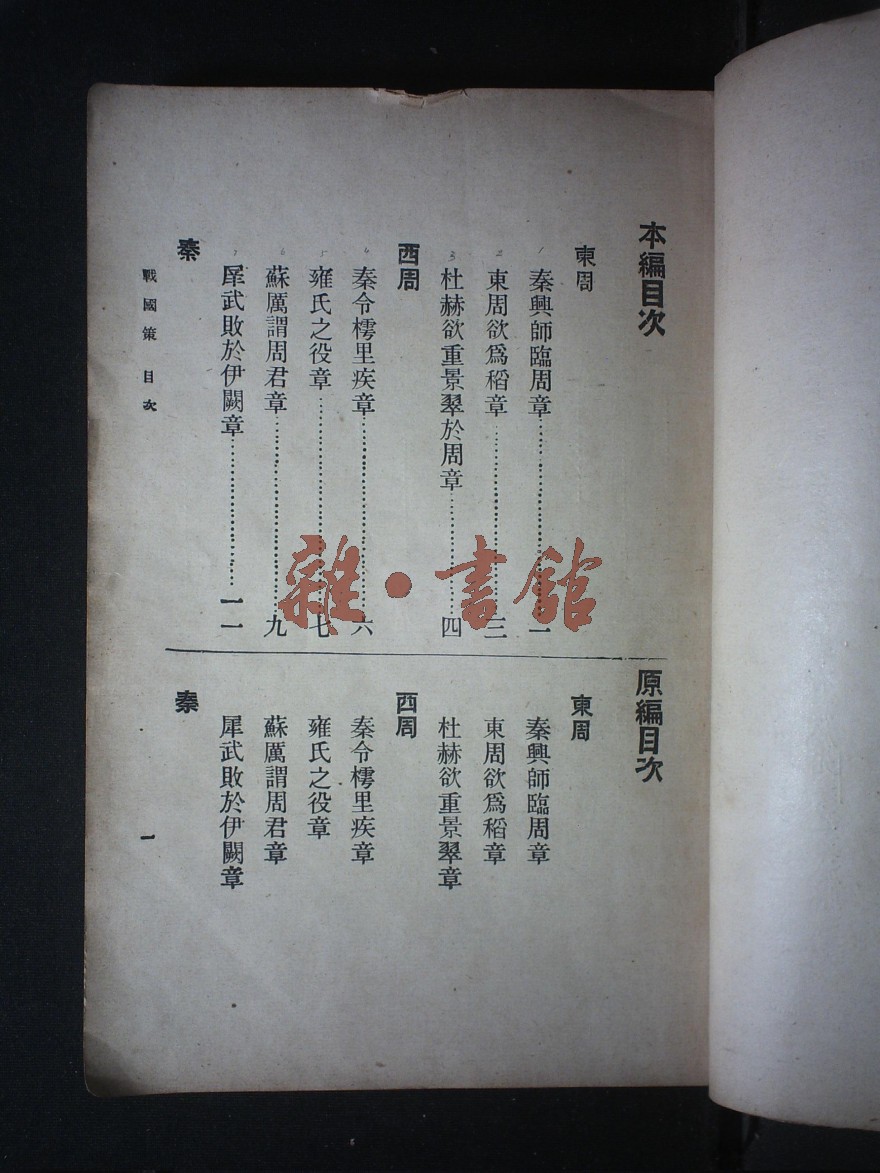 本編目次
東周
秦興師臨周章 一
東周欲爲稻章 三
杜赫欲重景翠於周章 四
西周
秦令樗里疾章 六
雍氏之役章 七
蘇厲謂周君章 九
犀武敗於伊闕章 一一
秦
原編目次
東周
秦興師臨周章
東周欲爲稻章
杜赫欲重景翠章
西周
秦令樗里疾章
雍氏之役章
蘇厲謂周君章
犀武敗於伊闕章
秦
戰國策 目次
一
雜·書館